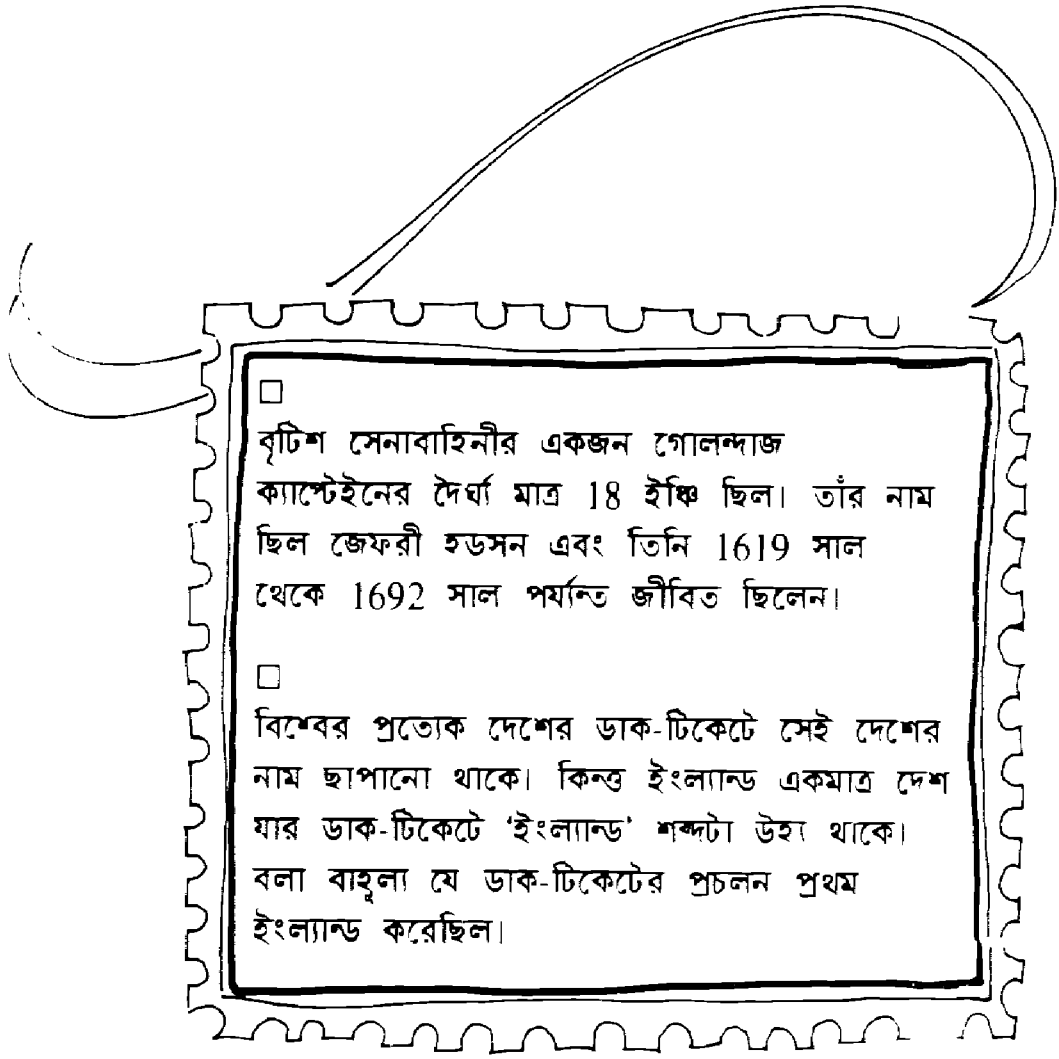 □
বৃটিশ সেনাবাহিনীর একজন গোলন্দাজ
ক্যাপ্টেইনের দৈর্ঘ্য মাত্র 18 ইঞ্চি ছিল। তাঁর নাম
ছিল জেফরী হডসন এবং তিনি 1619 সাল
থেকে 1692 সাল পর্যন্ত জীবিত ছিলেন।
□
বিশ্বের প্রত্যেক দেশের ডাক-টিকেটে সেই দেশের
নাম ছাপানো থাকে। কিন্তু ইংল্যান্ড একমাত্র দেশ
যার ডাক-টিকেটে ‘ইংল্যান্ড’ শব্দটা উহ্য থাকে।
বলা বাহুল্য যে ডাক-টিকেটের প্রচলন প্রথম
ইংল্যান্ড করেছিল।